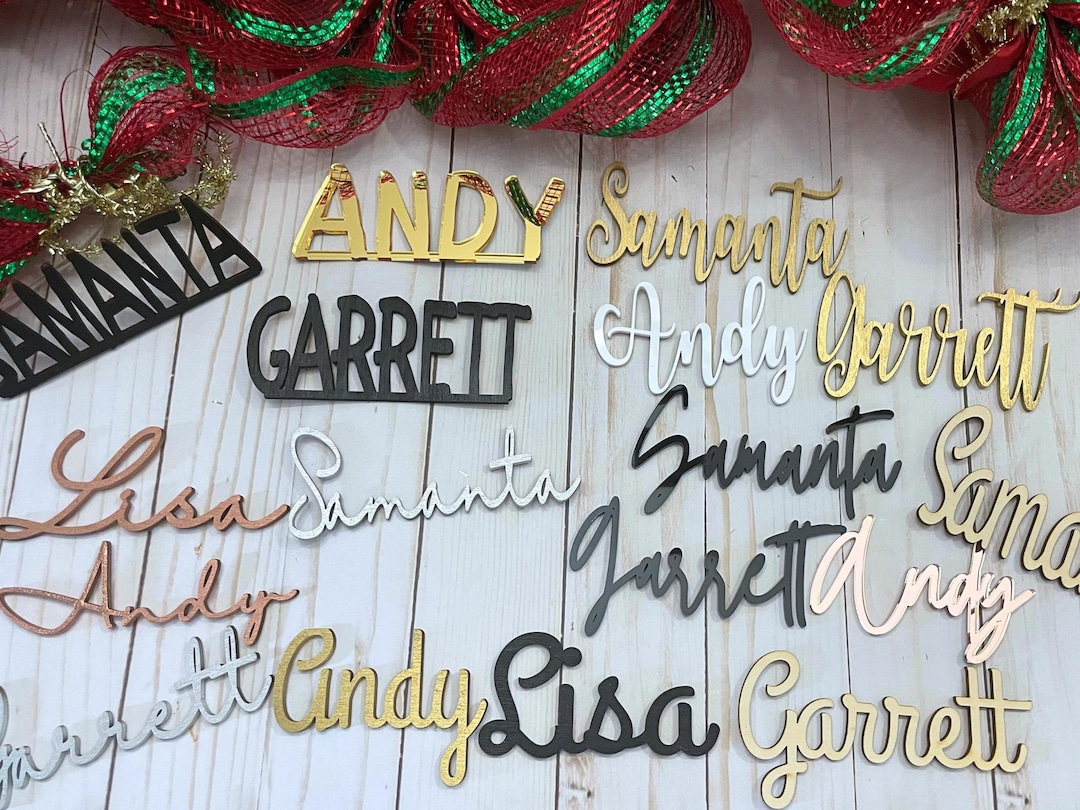 ANDY
Samanta
SAMANTA
GARRETT
Andy
Garrett
Lisa
Samanta
Samanta
Samanta
Andy
Garrett
Andy
Garrett
Andy
Lisa
Garrett